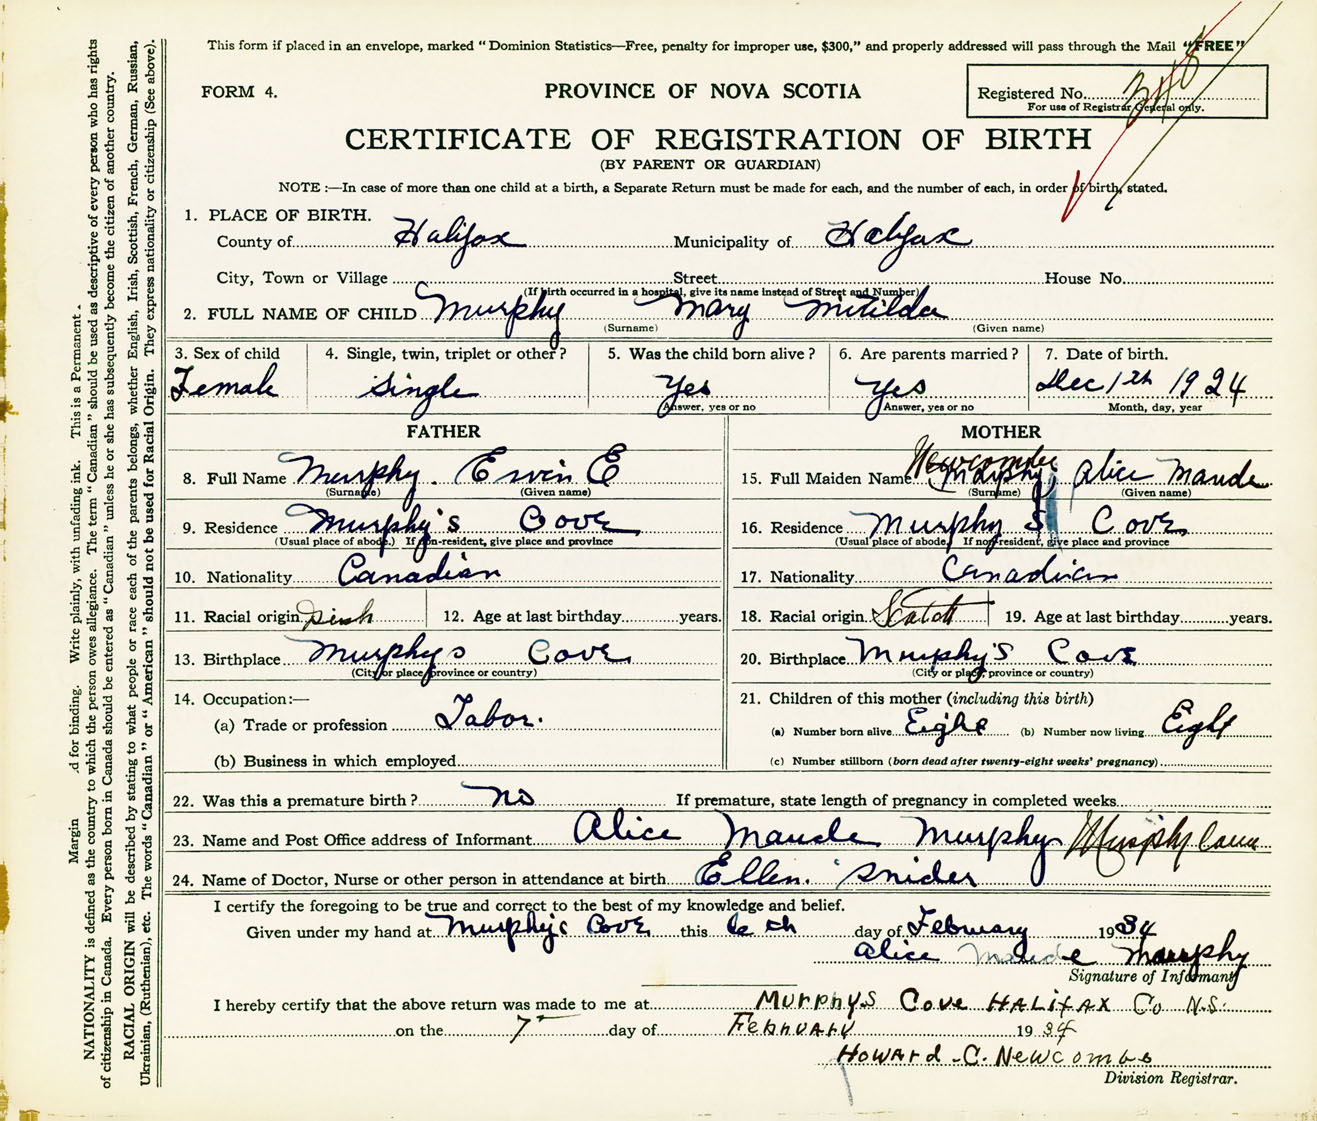 This form if placed in an envelope, marked "Dominion Statistics—Free, penalty for improper use, $300," and properly addressed will pass through the Mail "FREE"
FORM 4.
PROVINCE OF NOVA SCOTIA
Registered No. 348
For use of Registrar General only.
CERTIFICATE OF REGISTRATION OF BIRTH
(BY PARENT OR GUARDIAN)
NOTE :—In case of more than one child at a birth, a Separate Return must be made for each, and the number of each, in order of birth, stated.
1. PLACE OF BIRTH.
County of Halifax Municipality of Halifax
City, Town or Village Street House No.
(If birth occurred in a hospital, give its name instead of Street and Number)
2. FULL NAME OF CHILD Murphy Mary Mitilda
(Surname) (Given name)
3. Sex of child 4. Single, twin, triplet or other? 5. Was the child born alive? 6. Are parents married? 7. Date of birth.
Female Single Yes Yes Dec 1th 1924
Answer, yes or no Answer, yes or no Month, day, year
FATHER
8. Full Name Murphy. Ervin E
(Surname) (Given name)
9. Residence Murphy's Cove
(Usual place of abode.) If non-resident, give place and province
10. Nationality Canadian
11. Racial origin Irish 12. Age at last birthday years.
13. Birthplace Murphys Cove
(City or place, province or country)
14. Occupation:—
(a) Trade or profession Labor.
(b) Business in which employed
MOTHER
Newcombe
15. Full Maiden Name (Murphy) Alice Maude
(Surname) (Given name)
16. Residence Murphy S Cove
(Usual place of abode. If non-resident, give place and province
17. Nationality Canadian
18. Racial origin Scotch 19. Age at last birthday years.
20. Birthplace Murphy's Cove
(City or place, province or country)
21. Children of this mother (including this birth)
(a) Number born alive Eight (b) Number now living Eight
(c) Number stillborn (born dead after twenty-eight weeks' pregnancy)
22. Was this a premature birth? no If premature, state length of pregnancy in completed weeks
23. Name and Post Office address of Informant Alice Maude Murphy Murphy Cove
24. Name of Doctor, Nurse or other person in attendance at birth Ellen Snider
I certify the foregoing to be true and correct to the best of my knowledge and belief.
Given under my hand at Murphy's Cove this 6 th day of February 1934
Alice Maude Murphy
Signature of Informant
I hereby certify that the above return was made to me at Murphys Cove Halifax Co N.S.
on the 7th day of February 1934
Howard C. Newcombe
Division Registrar.
Margin .d for binding. Write plainly, with unfading ink. This is a Permanent .
NATIONALITY is defined as the country to which the person owes allegiance. The term "Canadian" should be used as descriptive of every person who has rights
of citizenship in Canada. Every person born in Canada should be entered as "Canadian" unless he or she has subsequently become the citizen of another country.
RACIAL ORIGIN will be described by stating to what people or race each of the parents belongs, whether English, Irish, Scottish, French, German, Russian,
Ukrainian, (Ruthenian), etc. The words "Canadian" or "American" should not be used for Racial Origin. They express nationality or citizenship (See above).